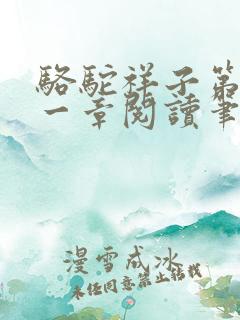 駱駝祥子第
一章閱讀筆
漫雪成冰
未任同意禁止轉載